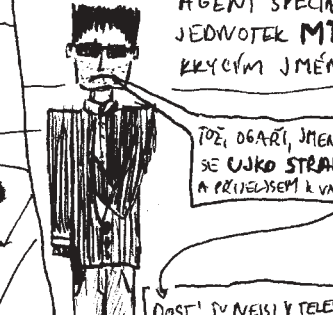 AGENT SPECIÁ
JEDNOTEK M
KRYCÍM JMÉN
TOŽ, OGAŘI, JMEN
SE UJKO STRA
A PŘIJELJSEM K VÁ
DOST! TU NEJSI V TELE